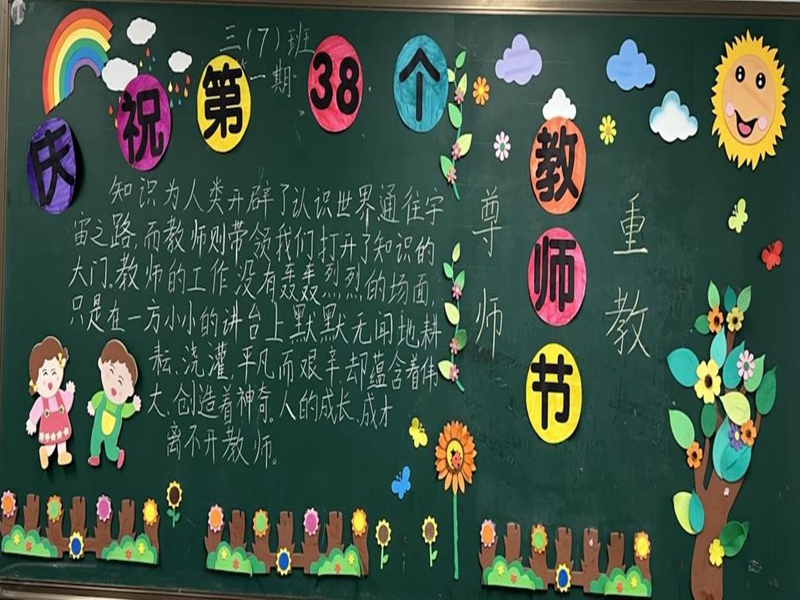 三(7)班
第一期
庆祝第38个
教师节
知识为人类开辟了认识世界通往宇
宙之路,而教师则带领我们打开了知识的
大门。教师的工作没有轰轰烈烈的场面,
只是在一方小小的讲台上默默无闻地耕
耘、浇灌,平凡而艰辛,却蕴含着伟
大,创造着神奇。人的成长、成才
离不开教师。
尊师
重教